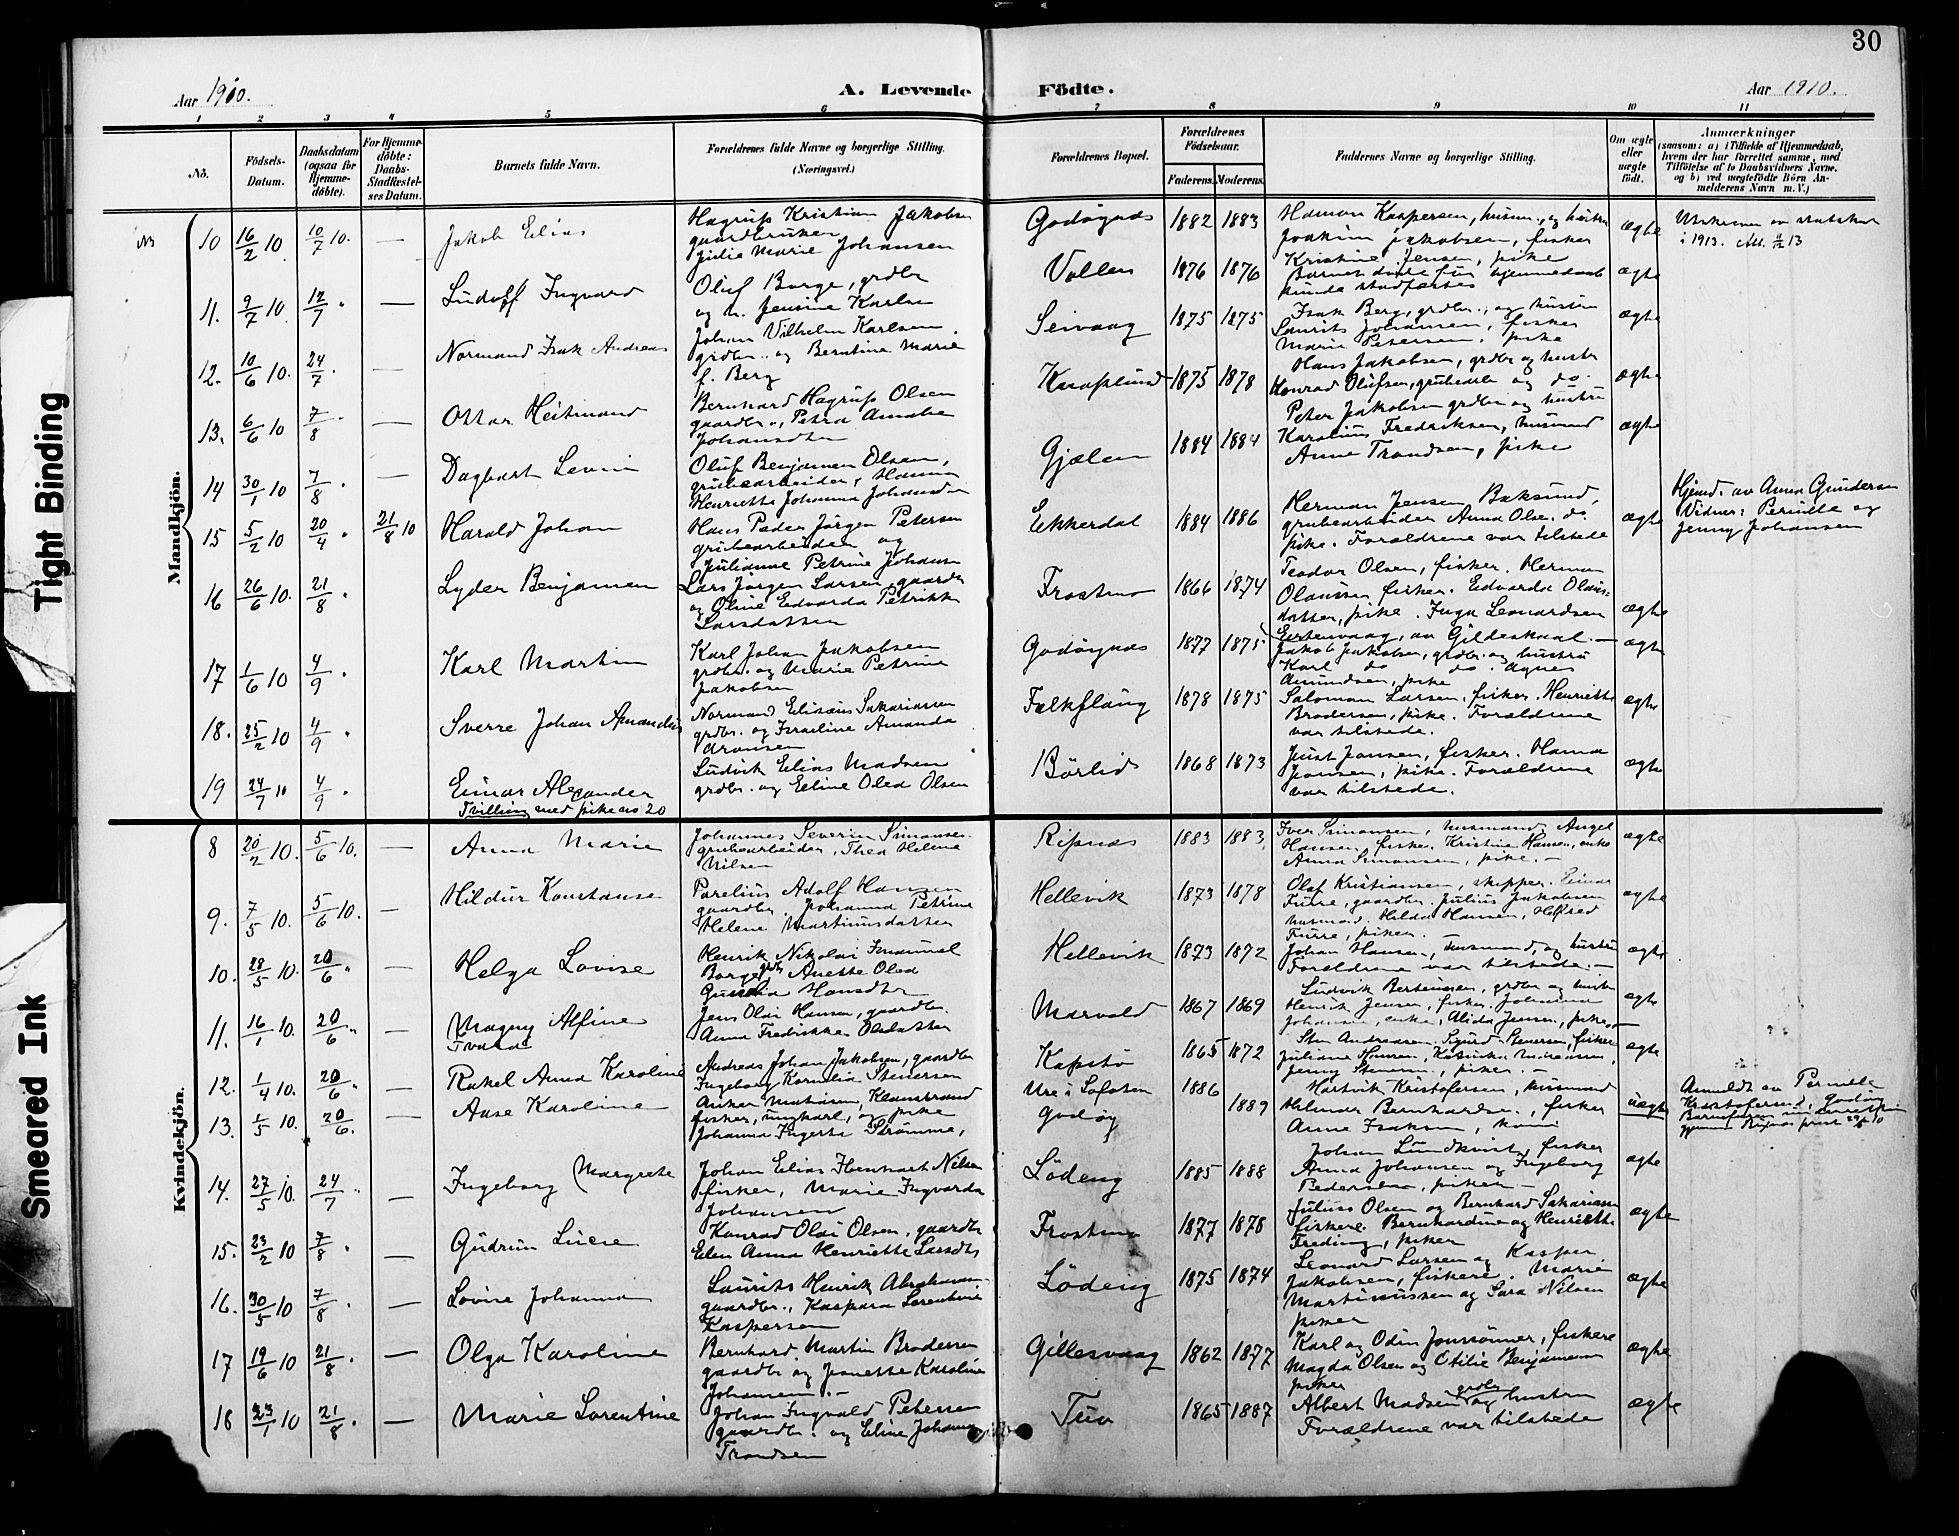 30
Aar 1910.
A. Levende Födte.
Aar 1910.
1 2 3 4 5 6 7 8 9 10 11
No.
Födsels-Datum.
Daabsdatum (ogsaa for Hjemme-döbte).
For Hjemme-döbte: Daabs-Stadfæstel-ses Datum.
Barnets fulde Navn.
Forældrenes fulde Navne og borgerlige Stilling. (Næringsvei.)
Forældrenes Bopæl.
Forældrenes Födselsaar.
Faderens. Moderens.
Faddernes Navne og borgerlige Stilling.
Om ægte eller uægte födt.
Anmærkninger
(saasom: a) i Tilfælde af Hjemmedaab,
hvem der har forrettet samme, med
Tilföielse af to Daabsvidners Navne,
og b) ved uægtefödte Börn An-
melderens Navn m. V.)
Tight Binding
Smeared Ink
Mandkjön.
10 16/2 10. 10/7 10. — Jakob Elias
Hagrup Kristian Jakobsen
gaardbruker
Julie Marie Johansen
Godøynes 1882 1883
Haman Kaspersen, husm., og hustru
Joakim Jakobsen, fisker
Kristine Jensen, pike
ægte
i 1913.
11. 9/7 10. 17/7 " — Ludolf Ingvard
Oluf Borge, grdbr
og h. Jensine Karlsen
Vollen 1876 1876
Barnet døde før hjemmedaab
kunde stadfæstes
ægte
12. 10/6 10. 24/7 . — Normand Isak Andreas
Johan Vilhelm Karlsen
grdbr. og Berntine Marie
f. Berg
Seivaag 1875 1875
Isak Berg, grdbr., og hustru
Laurits Johansen, fisker
Marie Petersen, pike
ægte
13. 6/6 10 7/8 " — Ottar Heitmand
Bernhard Hagrup Olsen
gaardbr., Petra Amalie
Johansdtr
Knaplund 1875 1878
Hans Jakobsen, grdbr og hustr
Konrad Olufsen, grubearb og do.
Peter Jakobsen grdbr og hustru
ægte
14 30/1 10 7/8 " — Dagbart Levin
Oluf Benjamin Olsen,
grubearbeider, Hanna
Henriette Johanna Johansdtr
Gjælen 1884 1884
Karolius Fredriksen, husmand
Anne Trondsen, pike
ægte
15 5/2 10 20/4 " 21/8 10 Harald Johan
Hans Peder Jørgen Petersen
grubearbeider og
Julianne Petrine Johansen
Ekkerdal 1884 1886
Herman Jensen Baksund,
grubearbeider Anna Olsen do
pike. Forældrene var tilstede
ægte
Hjemd. av Anna Gundersen
Vidner: Pernille og
Jenny Johansen
16 26/6 10. 21/8 " Lyder Benjamin
Lars Jørgen Larsen, gaardbr
og Oline Edvarda Petrikke
Larsdatter
Frostmo 1866 1874
Teodor Olsen, fisker. Herman
Olaussen fisker. Edvarda Olaus-
datter, pike. Inga Leonardsen
Eertenvaag, av Gildeskaal. —
ægte
17 1/6 10 4/9 " Karl Martin
Karl Johan Jakobsen
grdbr. og Marie Petrine
Jakobsen
Godøynes 1877 1875
Jakob Jakobsen, grdbr. og hustru
Karl do do. Agnes
Amundsen, pike
ægte
18. 25/2 10 4/9 " Sverre Johan Amandus
Normand Elisæus Sakariassen
grdbr. og Israeline Amanda
Aronsen
Falkflaug 1878 1875
Salomon Larsen, fisker. Henriette
Brodersen, pike. Forældrene
var tilstede.
ægte
19 24/7 10 4/9 " Einar Alexander
Tvilling med pike no 20
Ludvik Elias Madsen
grdbr. og Eline Olea Olsen
Børlid 1868 1873
Just Jansen, fisker. Hanna
Jansen, pike. Forældrene
var tilstede.
ægte
Kvindekjön.
8 20/2 10. 5/6 10. — Anna Marie
Johannes Severin Simonsen
grubearbeider, Thea Helene
Nilsen
Ripnes 1883 1883
Iver Simonsen, husmand, Angel
Hansen, fisker. Kristine Hansen, enke
Anna Simonsen, pike. —
ægte
9. 7/5 10. 5/6 10. — Hildur Konstanse
Parelius Adolf Hansen
gaardbr, Johanna Petrine
Helene Martinusdatter
Hellevik 1873 1878
Olaf Kristiansen, skipper. Einar
Furre, gaardbr. Julius Jakobsen
husmand. Hilda Hansen,
Furre, piker.
ægte
10. 28/5 10. 20/6 " — Helga Lovise
Henrik Nikolai Imanuel
Borge grdbr. Anette Olea
Hansdtr
Hellevik 1873 1872
Johan Hansen, husmand, og hustru
Forældrene var tilstede. —
ægte
11. 16/1 10. 20/6 " — Magny Alfine
Tvara
Jens Olai Hansen, gaardbr.
Anna Fredrikke Olsdatter
Marvold 1867 1869
Ludvik Berteussen, grdbr og hustru
Henrik Jensen, fisker, Johanna
Johansen, enke, Alida Jensen, pike. —
ægte
12. 1/4 10. 20/6 " — Rakel Anna Karoline
Andreas Johan Jakobsen, gaardbr
Ingeborg Kornelia Stenersen
Kapstø 1865 1872
Sten Andreasen, Sigurd Stenersen, fisker
Juliane Hansen, Katinka Andreassen,
Jenny Stenersen, piker. —
ægte
13. 1/5 10. 20/6. — Aase Karoline
Anker Mathisen, Klounstrand
fisker, ungkarl, og pike
Johanna Ingerta Strømme,
Ure i Lofoten 1886
Godøy 1889
Hartvik Kristofersen, husmand
Hilmar Bernhardsen, fisker
Anne Isaksen, kone
uægte
Anmeldt av Pernille
Kristofersen, Godøy
14. 27/5 10. 24/7 " — Ingeborg Margrete
Johan Elias Ebenhart Nilsen
fisker, Marie Ingvarda
Johansen
Løding 1885 1888
Johan Lundkvist, fisker
Anna Johansen og Ingeborg
Pedersen, piker. —
ægte
15. 23/2 10 7/8 " — Gudrun Lucie
Konrad Olai Olsen, gaardbr
Elen Anna Henriette Larsdtr
Frostmo 1877 1878
Julius Olsen og Bernhard Sakariassen
fiskere. Bernhardine og Henriette
Freding, piker
ægte
16. 30/5 10 7/8 " — Lovise Johanna
Laurits Henrik Abrahamsen
gaardbr., Kaspara Lorentine
Kaspersen
Løding 1875 1874
Leonard Larsen og Kasper
Jakobsen, fiskere. Marie
Martinussen og Sara Nilsen
piker
ægte
17 19/6 10 21/8 " — Olga Karoline
Bernhard Martin Brodersen
gaardbr og Jeanette Karoline
Johansen. —
Gillesvaag 1862 1877
Karl og Odin Jonssønner, fiskere
Magda Olsen og Otilie Benjaminsen
piker
ægte
18 23/1 10 21/8 " — Marie Lorentine
Johan Ingvald Petersen
gaardbr. og Eline Johanna
Trondsen
Tuv 1865 1887
Albert Madsen grdbr og hustru
Forældrene var tilstede
ægte